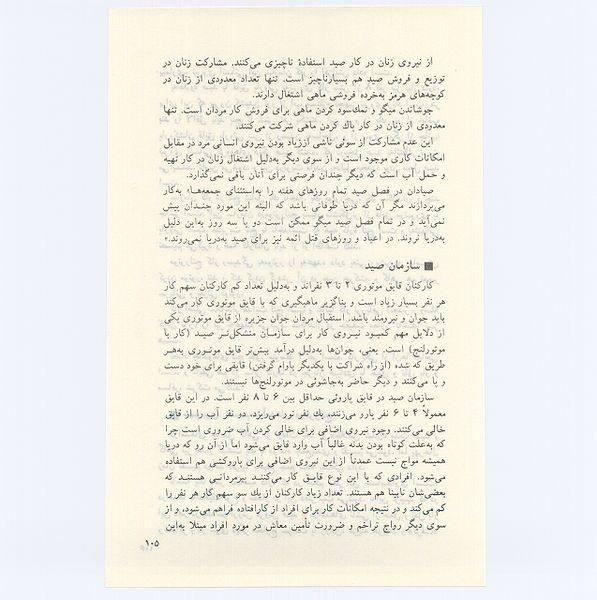 از نیروی زنان در کار صید استفادهٔ ناچیزی می‌کنند. مشارکت زنان در
توزیع و فروش صید هم بسیارناچیز است. تنها تعداد معدودی از زنان در
کوچه‌های هرمز به‌خرده فروشی ماهی اشتغال دارند.
جوشاندن میگو و نمک‌سود کردن ماهی برای فروش کار مردان است. تنها
معدودی از زنان در کار پاک کردن ماهی شرکت می‌کنند.
این عدم مشارکت از سوئی ناشی اززیاد بودن نیروی انسانی مرد در مقابل
امکانات کاری موجود است و از سوی دیگر به‌دلیل اشتغال زنان در کار تهیه
و حمل آب است که دیگر چندان فرصتی برای آنان باقی نمی‌گذارد.
صیادان در فصل صید تمام روزهای هفته را به‌استثنای جمعه‌ها، به‌کار
می‌پردازند مگر آن که دریا طوفانی باشد که البته این مورد چندان پیش
نمی‌آید و در تمام فصل صید میگو ممکن است دو یا سه روز به‌این دلیل
به‌دریا نروند. در اعیاد و روزهای قتل ائمه نیز برای صید به‌دریا نمی‌روند.
■ سازمان صید
کارکنان قایق موتوری ۲ تا ۳ نفراند و به‌دلیل تعداد کم کارکنان سهم کار
هر نفر بسیار زیاد است و بناگزیر ماهیگیری که با قایق موتوری کار می‌کند
باید جوان و نیرومند باشد. استقبال مردان جوان جزیره از قایق موتوری یکی
از دلایل مهم کمبود نیروی کار برای سازمان متشکل‌تر صید (کار با
موتورلنج) است. یعنی، جوان‌ها به‌دلیل درآمد بیش‌تر قایق موتوری به‌هر
طریق که شده (از راه شراکت با یکدیگر یاوام گرفتن) قایقی برای خود دست
و پا می‌کنند و دیگر حاضر به‌جاشوئی در موتورلنج‌ها نیستند.
سازمان صید در قایق پاروئی حداقل بین ۶ تا ۸ نفر است. در این قایق
معمولاً ۴ تا ۶ نفر پارو می‌زنند، یك نفر تور می‌ریزد، دو نفر آب را از قایق
خالی می‌کنند. وجود نیروی اضافی برای خالی کردن آب ضروری است چرا
که به‌علت کوتاه بودن بدنه غالباً آب وارد قایق می‌شود اما از آن رو که دریا
همیشه مواج نیست عمدتاً از این نیروی اضافی برای پاروکشی هم استفاده
می‌شود. افرادی که با این نوع قایق کار می‌کنند پیرمردانی هستند که
بعضی‌شان نابینا هم هستند. تعداد زیاد کارکنان از یك سو سهم کار هر نفر را
کم می‌کند و در نتیجه امکانات کار برای افراد از کارافتاده فراهم می‌شود، و از
سوی دیگر رواج تراخم و ضرورت تأمین معاش در مورد افراد مبتلا به‌این
۱۰۵